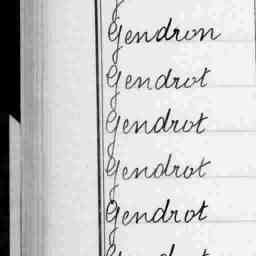 Gendron
Gendrot
Gendrot
Gendrot
Gendrot